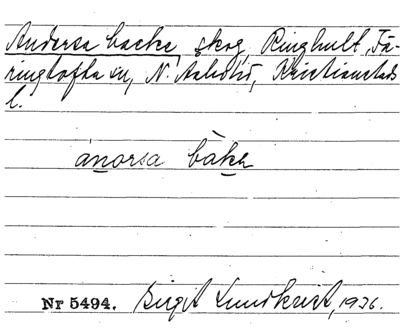 Andersa backa, skog, Ringhult, Fä-
ringtofta sn, N. Åsbo hd, Kristianstads
l.
ánorsa bàka
Nr 5494. Birgit Lundkvist, 1936.